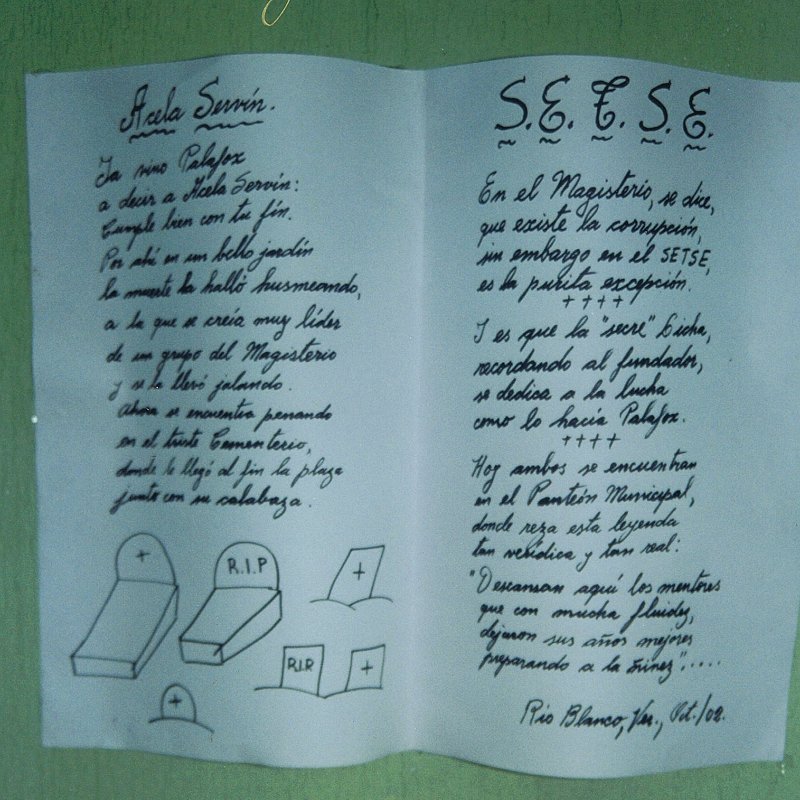 Acela Servín.
Ya vino Palafox
a decir a Acela Servín:
Cumple bien con tu fín.
Por ahí en un bello jardín
la muerte la halló husmeando,
a la que se creía muy líder
de un grupo del Magisterio
y se la llevó jalando.
Ahora se encuentra penando
en el triste Cementerio,
donde le llegó al fin la plaga
junto con su calabaza.
R.I.P
R.I.P
S.E.T.S.E.
En el Magisterio, se dice,
que existe la corrupción,
sin embargo en el SETSE,
es la purita excepción.
++++
Y es que la "secre" Licha,
recordando al fundador,
se dedica a la lucha
como lo hacía Palafox.
++++
Hoy ambos se encuentran
en el Panteón Municipal,
donde reza esta leyenda
tan verídica y tan real:
"Descansan aquí los mentores
que con mucha fluidez,
dejaron sus años mejores
preparando a la niñez".....
Río Blanco, Ver., Oct./02.